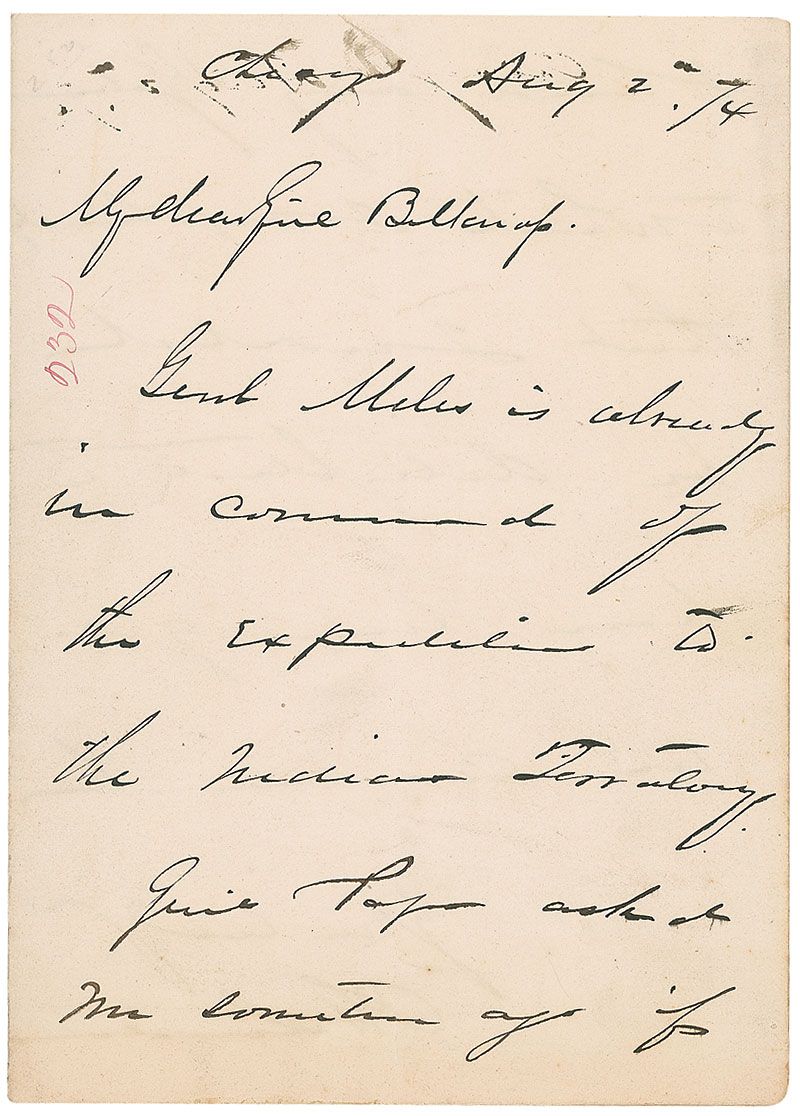 Chicago Aug 2nd. /74
My dear Genl Belknap.
232
Genl Miles is already
in command of
the Expedition to
the Indian Territory.
Genl Pope asked
me sometime ago if